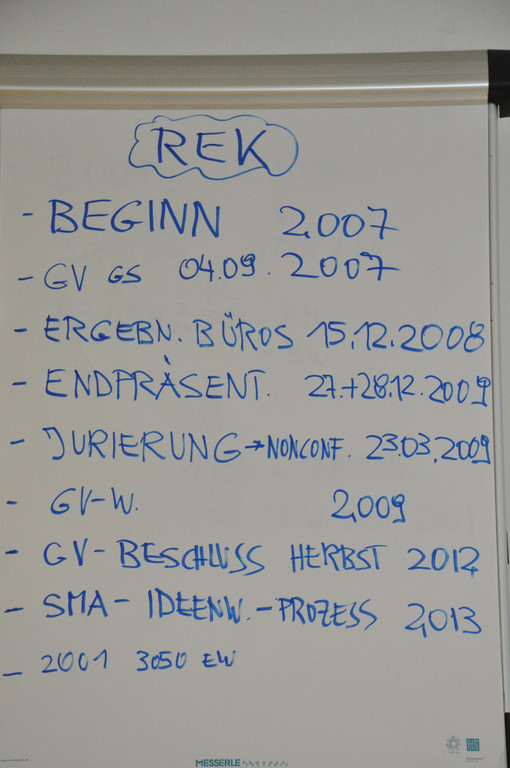 REK
- BEGINN 2007
- GV GS 04.09. 2007
- ERGEBN. BÜROS 15.12.2008
- ENDPRÄSENT. 27.+28.12.2009
- JURIERUNG → NONCONF. 23.03.2009
- GV-W. 2009
- GV-BESCHLUSS HERBST 2012
- SMA-IDEENW.-PROZESS 2013
- 2001 3050 EW
MESSERLE